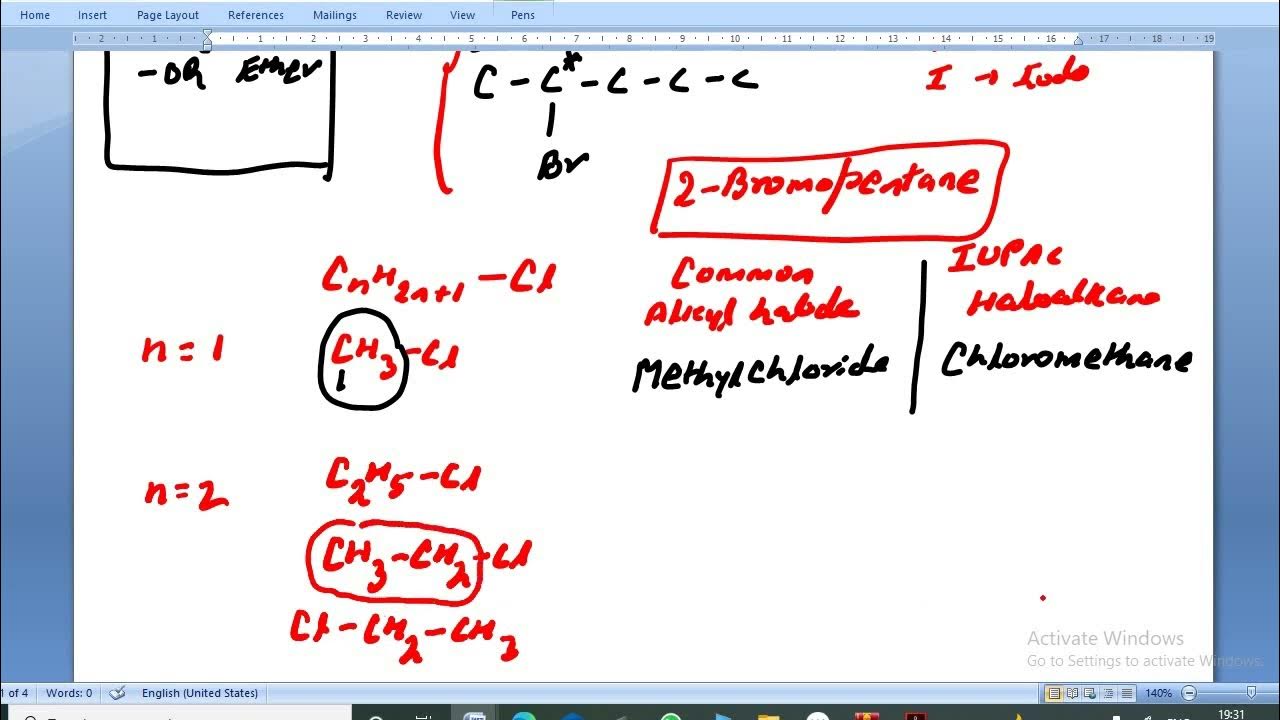 Home Insert Page Layout References Mailings Review View Pens
2 1 1 2 3 4 5 6 7 8 9 10 11 12 13 14 15 16 17 18 19
-OR Ether
C - C* - C - C - C
Br
I → Iodo
2-Bromopentane
CnH2n+1 - Cl
Common
Alkyl halide
IUPAC
Haloalkane
n = 1
CH3-Cl
1
Methyl chloride
Chloromethane
n = 2
C2H5-Cl
CH3-CH2-Cl
Cl-CH2-CH3
Activate Windows
Go to Settings to activate Windows.
1 of 4 Words: 0 English (United States) 140%
19:31